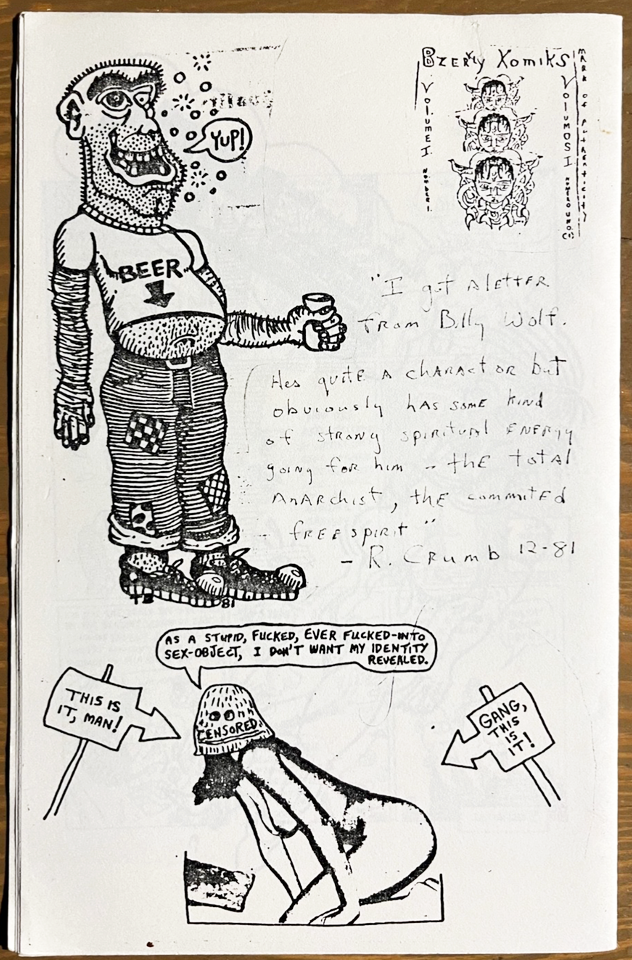 BZERKY XOMIKS
VOLUME I. NUMBER 1.
VOLUMOS I
MARK OF AUTHENTICITY
YUP!
BEER
"I got a letter
from Billy Wolf.
Hes quite a charactor but
obviously has some kind
of strong spiritural energy
going for him -- the total
anarchist, the commited
free spirit"
- R. Crumb 12-81
81
AS A STUPID, FUCKED, EVER FUCKED-INTO
SEX-OBJECT, I DON'T WANT MY IDENTITY
REVEALED.
THIS IS
IT, MAN!
CENSORED
GANG,
THIS
IS
IT!